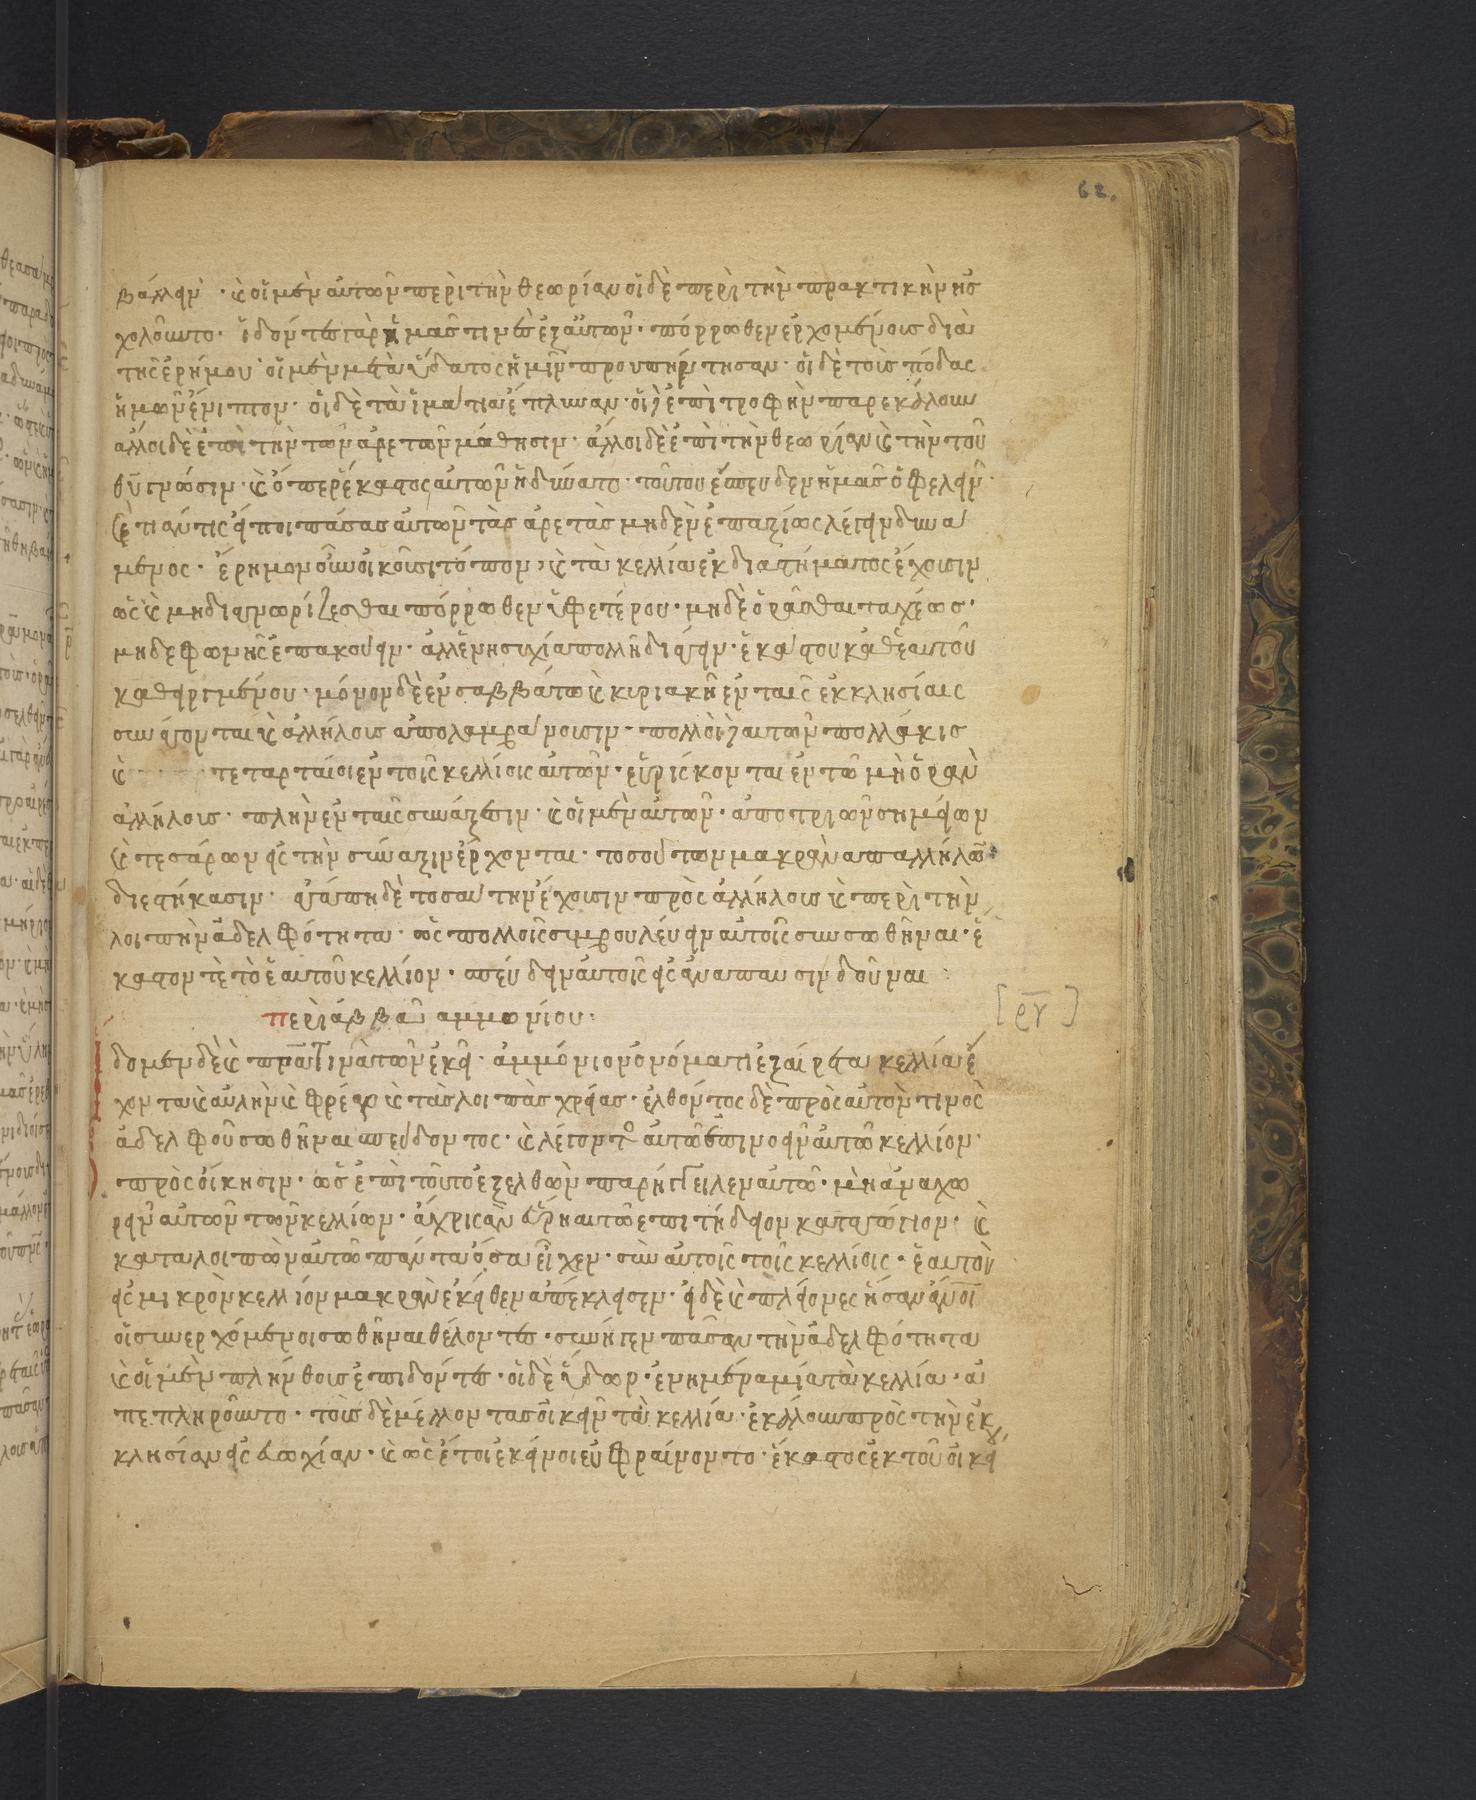 62.
βάλλειν· καὶ οἱ μὲν αὐτῶν περὶ τὴν θεωρίαν οἱ δὲ περὶ τὴν πρακτικὴν ἠσ
χολοῦντο· ἰδόντες γὰρ ἡμᾶς τινὲς ἐξ αὐτῶν· πόρρωθεν ἐρχομένοις διὰ
τῆς ἐρήμου· οἱ μὲν μετὰ ὕδατος ἡμῖν προυπήντησαν· οἱ δὲ τοὺς πόδας
ἡμῶν ἔνιπτον· οἱ δὲ τὰ ἱμάτια ἔπλυναν· οἱ δὲ ἐπὶ τροφὴν παρεκάλουν
ἄλλοι δὲ ἐπὶ τὴν τῶν ἀρετῶν μάθησιν· ἄλλοι δὲ ἐπὶ τὴν θεωρίαν καὶ τὴν τοῦ
θυ γνῶσιν· καὶ ὅπερ ἕκαστος αὐτῶν ἠδύνατο· τοῦτον ἔσπευδεν ἡμᾶς ὀφελεῖν·
καὶ τί ἄν τις εἴποι πάσας αὐτῶν τὰς ἀρετὰς μηδὲν ἐπαξίως λέγειν δυνά
μενος· ἔρημον οὖν οἰκοῦσι τόπον· καὶ τὰ κελλία ἐκ διαστήματος ἔχουσιν
ὡς καὶ μὴ διαγνωρίζεσθαι πόρρωθεν ὑφ ετέρου· μηδὲ ὁρᾶσθαι ταχέως·
μηδὲ φωνῆς ἐπακούειν· ἀλλ ἐν ησυχία πολλῆ διάγειν· ἑκάστου καθ ἑαυτοῦ
καθειργμένου· μόνον δὲ ἐν σαββάτω καὶ κυριακῆ ἐν ταῖς ἐκκλησίαις
συνάγονται καὶ ἀλλήλους ἀπολαμβάνουσιν· πολλοὶ δὲ αυτῶν πολλάκις
καὶ τεταρταῖοι ἐν τοῖς κελλίοις αὐτῶν· εὑρίσκονται ἐν τῶ μὴ ὁρᾶν
ἀλλήλους· πλὴν ἐν ταῖς συνάξεσιν· καὶ οἱ μὲν αὐτῶν· ἀπο τριῶν σημείων
καὶ τεσάρων εἰς τὴν σύναξιν ἔρχονται· τοσούτων μακρὰν απ αλλήλων
διεστήκασιν· ἀγάπην δὲ τοσαύτην ἔχουσιν πρὸς ἀλλήλους καὶ περὶ τὴν
λοιπὴν ἀδελφότητα· ὡς πολλοῖς συμβουλεύειν αὐτοῖς συνσωθῆναι· ἕ
καστον τὲ τὸ ἑαυτοῦ κελλίον· σπεύδειν αὐτοῖς εἰς ἀνάπαυσιν δοῦναι:
περὶ ἀββᾶ αμμωνίου:
[ργ]
δομεν δὲ καὶ πρα τινὰ τῶν ἐκεῖ· ἀμμόνιον ὀνόματι ἐξαίρετα κελλία ἔ
χοντα καὶ αὐλὴν καὶ φρέαρ καὶ τὰς λοιπὰς χρείας· ἐλθόντος δὲ πρὸς αὐτόν τινος
ἀδελφοῦ σωθῆναι σπεύδοντος· καὶ λέγοντος αὐτῶ ἐπινοεῖν αὐτῶ κελλίον·
πρὸς οἴκησιν· ὡς ἐπὶ τοῦτο ἐξελθὼν παρήγγειλεν αὐτῶ· μὴ ἀναχω
ρεῖν αὐτῶν τῶν κελλίων· ἄχρις ἂν εὕρη αυτῶ επιτήδειον καταγώγιον· καὶ
καταλοιπὼν αὐτῶ πάντα ὅσα εἶχεν· σὺν αὐτοῖς τοῖς κελλίοις· ἑαυτὸν
εἰς μικρὸν κελλίον μακρὰν ἐκεῖθεν ἀπέκλεισεν· εἰ δὲ καὶ πλείονες ἦσαν ανοι
οἱ συνερχόμενοι σωθῆναι θέλοντες· συνήγεν πᾶσαν τὴν ἀδελφότητα
καὶ οἱ μὲν πλήνθους ἐπιδόντες· οἱ δὲ ὕδωρ· ἐν ημέρα μία τὰ κελλία· ἀ
πεπληροῦντο· τοὺς δὲ μέλλοντας οἰκεῖν τὰ κελλία· ἐκάλουν πρὸς τὴν ἐκ
κλησίαν εἰς εὐωχίαν· καὶ ὡς ἔτι ἐκεῖνοι ευφραίνοντο· ἕκαστος ἐκ τοῦ οἰκεί